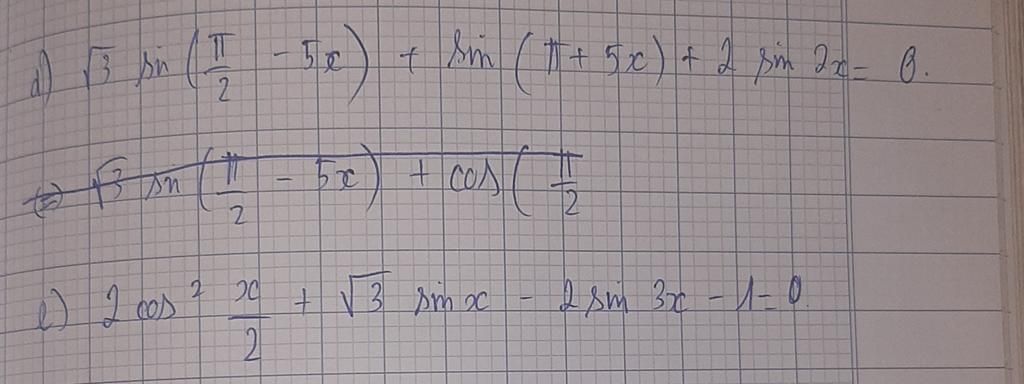 d) √3 sin(π/2 - 5x) + sin(π + 5x) + 2 sin 2x = 0.
⇔ √3 sin(π/2 - 5x) + cos(π/2
e) 2 cos² x/2 + √3 sin x - 2 sin 3x - 1 = 0.